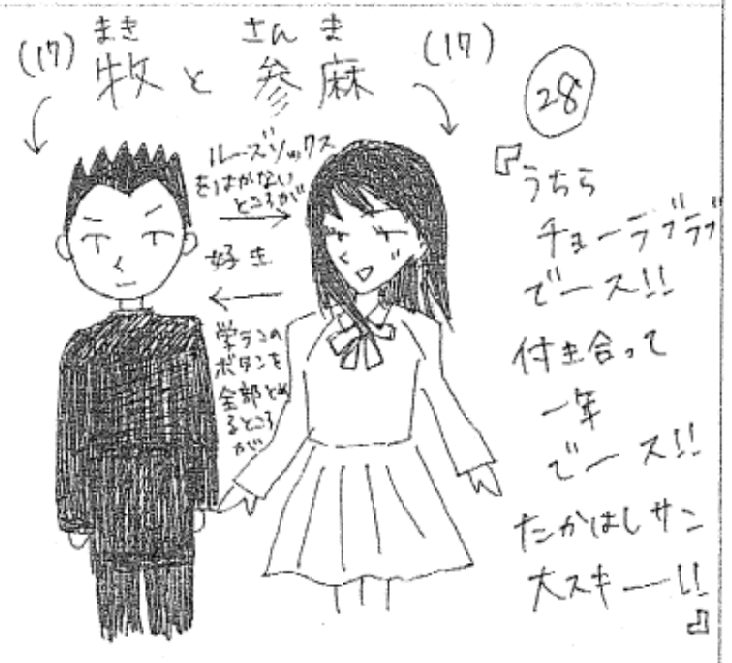 まき さんま
(17) 牧と参麻 (17)
ルーズソックス
をはかない
ところが
好き
学ランの
ボタンを
全部とめ
るところ
が
28
『うちら
チョーラブラブ
でース!!
付き合って
一年
でース!!
たかはしサン
大スキー!!
』